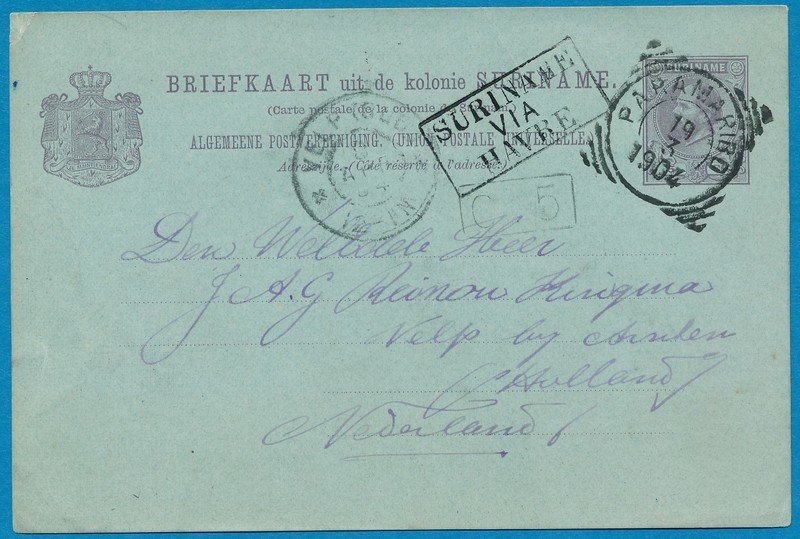 SURINAME
BRIEFKAART uit de kolonie SURINAME.
(Carte postale de la colonie de Suriname)
ALGEMEENE POSTVEREENIGING. (UNION POSTALE UNIVERSELLE)
Adreszijde. (Côté réservé à l'adresse.)
SURINAME
VIA
HAVRE
PARAMARIBO
19
3
1904
C 5
Den Weledele Heer
J A. G Reinou Kingma
Velp by
(Holland)
Nederland